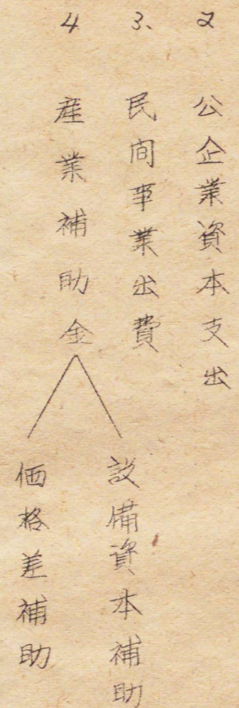 2 公企業資本支出
3. 民间事業出費
4 産業補助金
設備資本補助
価格差補助